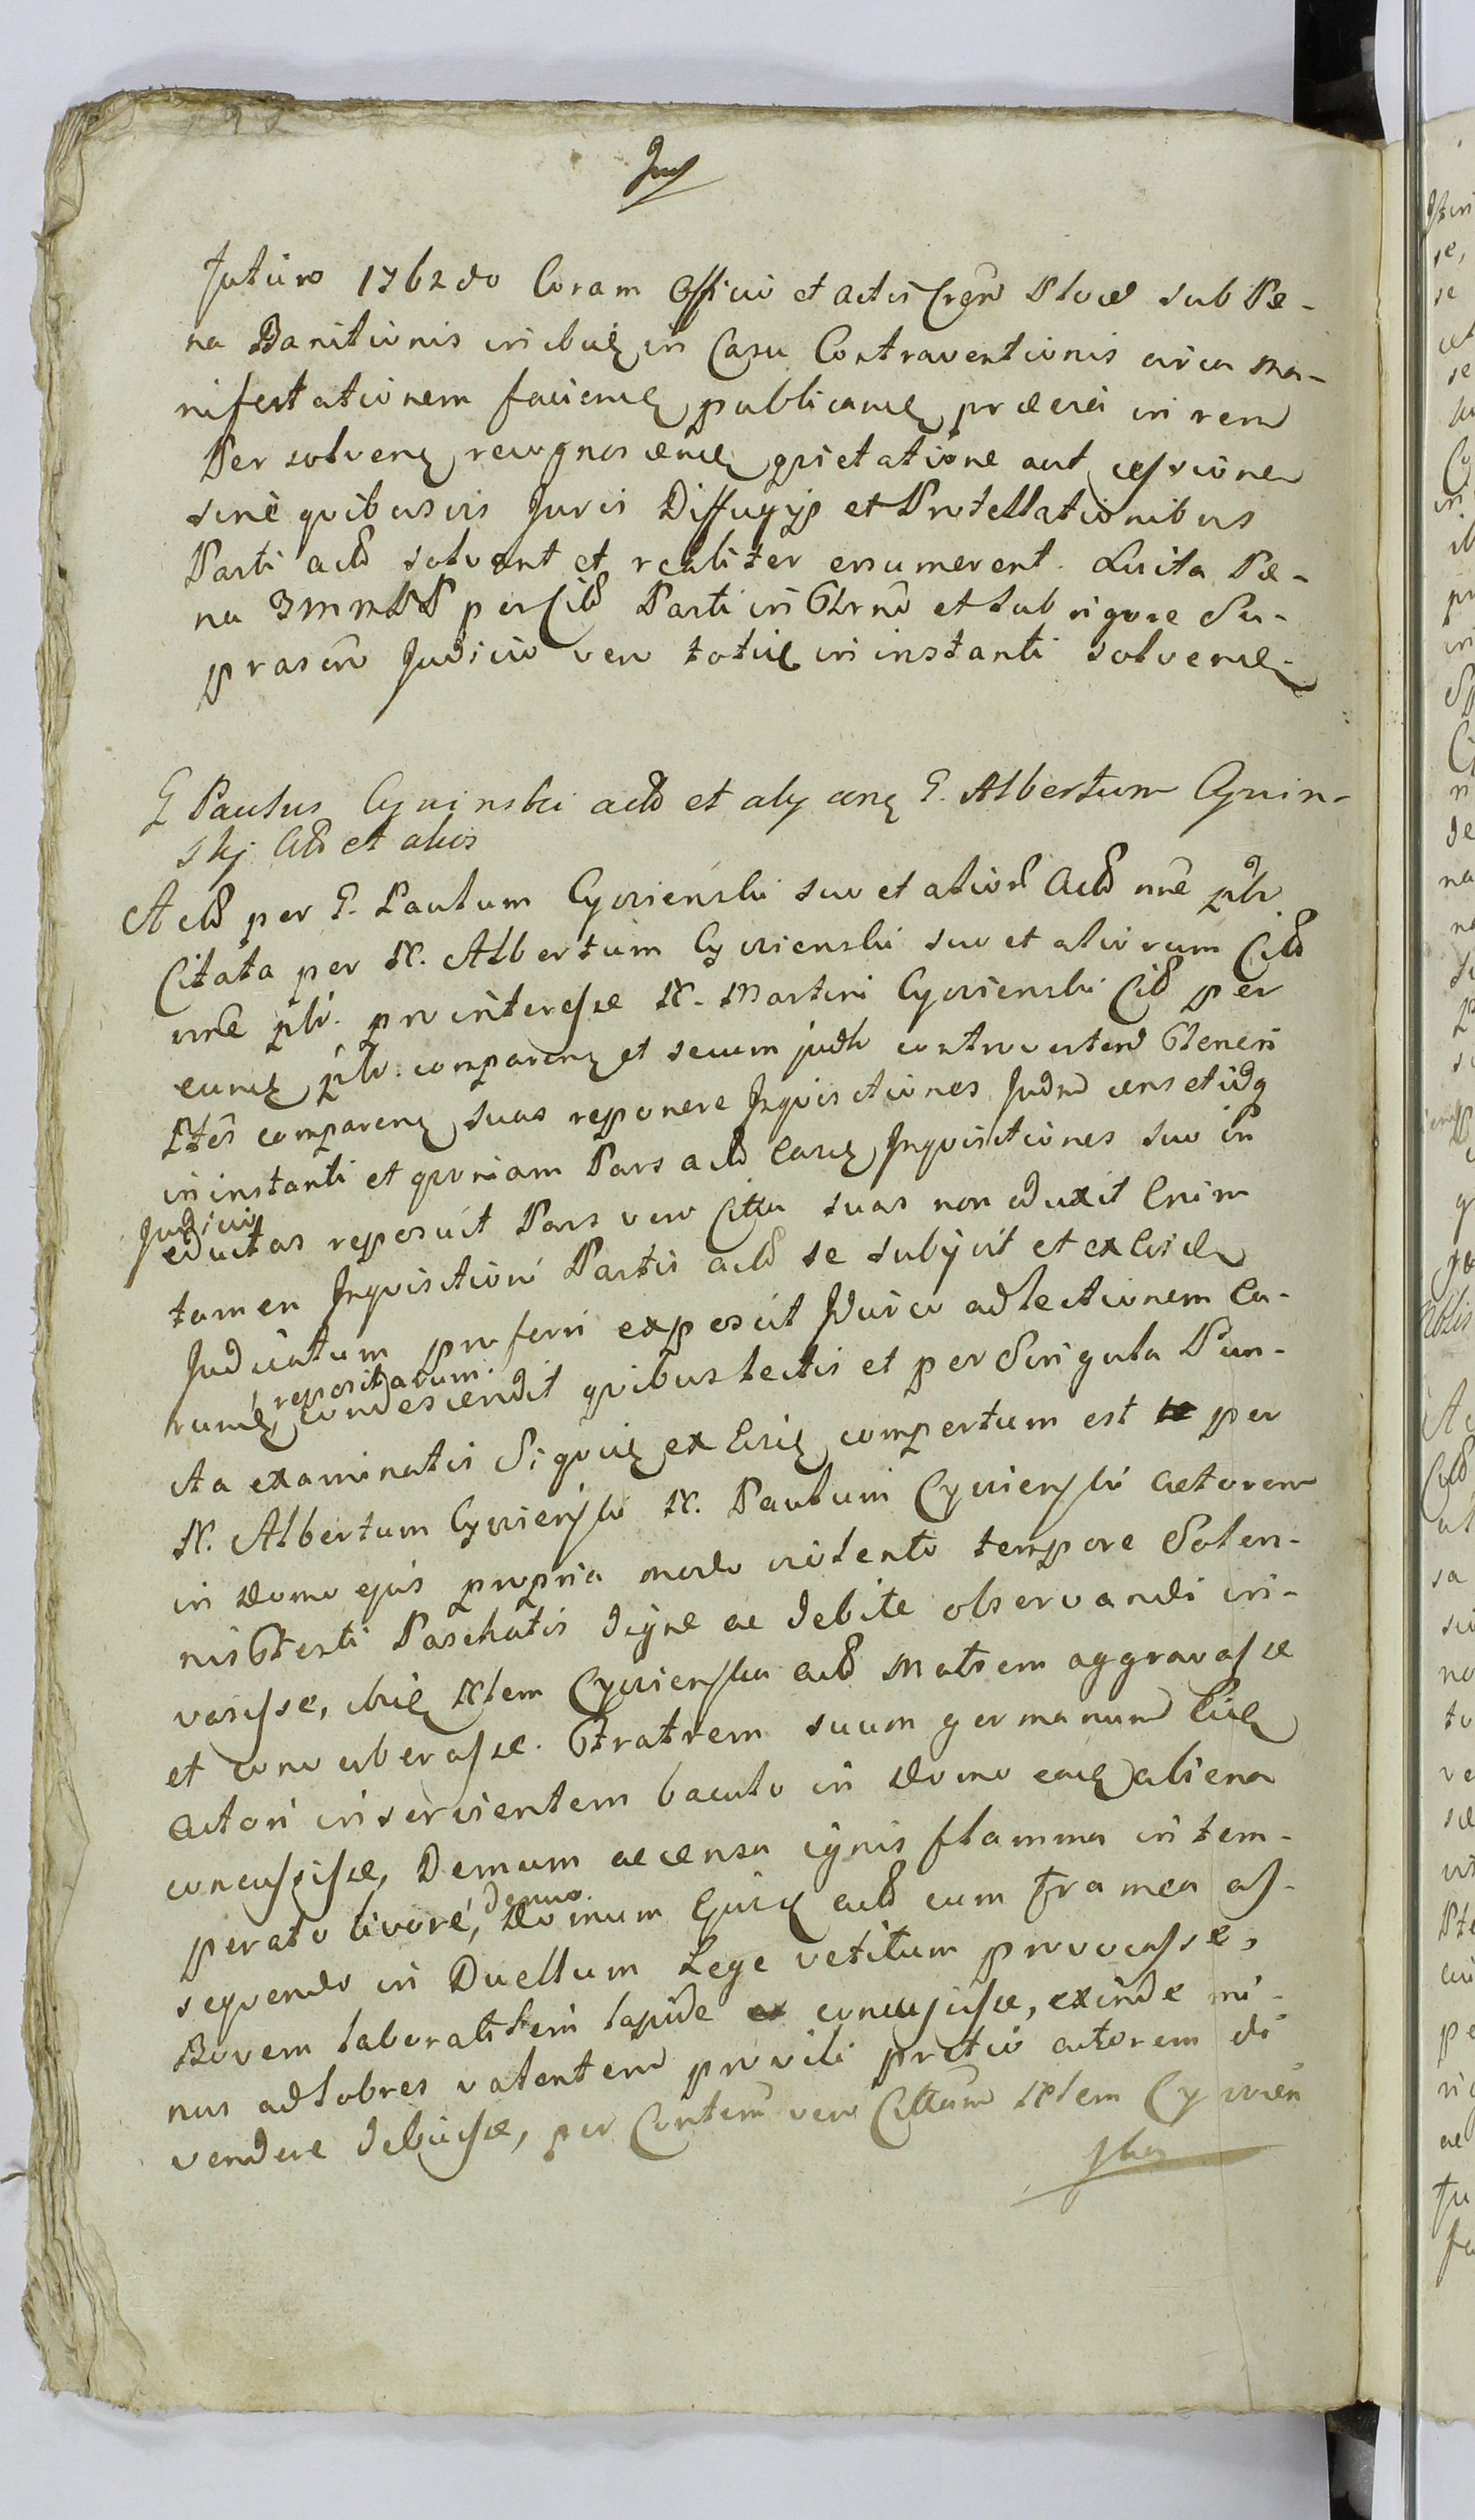 futuro 1762do Coram Officio et actis Cren Ploce sub Pæ-
na Banitionis inibiq in Casu Contraventionis circa Ma-
nifestationem facienq publicanq præcia in rem
Persolvenq recognoscenq quietatione aut cessione
sine quibusvis Juris Diffugijs et Protellationibus
Parti actt solvant et realiter enumerent. Luita Pæ-
na 3 m m PP per Citt Parti in et sub rigore Su-
prascro Judicio vero totiq in instanti solvenq
G Paulus Cywinski actt et alij conq G. Albertum Cywin-
skj Citt et alios
Actt per G. Paulum Cywienski suo et alior Actt nne plr
Citata per N. Albertum Cywienski suo et aliorum Citt
nne plr. pro interesse N. Martini Cywienski Citt per
eunq plr. comparenq et secum judtr controverten teneri
Ptes comparenq suas reponere Inquisitiones Judm cens etidq
in instanti et quoniam Pars actt easq Inquisitiones suo in
Judicio
eductas reposuit Pars vero Citta suas non eduxit Enim
tamen Inquisitioni Partis actt se subijcit et ex Eisdq
Judicatum proferri exposcit Judico ad lectionem Ea-
repositarum
rumq condescendit quibus lectis et per Singula Pun-
cta examinatis Siquiq ex Eisq compertum est per
N. Albertum Cywiensko N. Paulum Cywiensko actorem
in Domo ejus propria modo violento tempore Solen-
nis Festi Paschatis digne ac debite observandi in-
vasisse, ibiq Nlem Cywienska actt Matrem aggravasse
et converberasse. Fratrem suum germanum Eiq
actori inservientem baculo in Domo eaq aliena
concussisse, Demum accensa ignis flamma in tem-
denuo.
perato livore, Domum Ejusq actt cum framea as-
sequendo in Duellum Lege vetitum provocasse,
Bovem laboratilem lapide concussisse, exinde mi-
nus ad labores valentem pro vili pretio actorem di
vendere debuisse, per Contem vero Cittam Nlem Cywien
ska